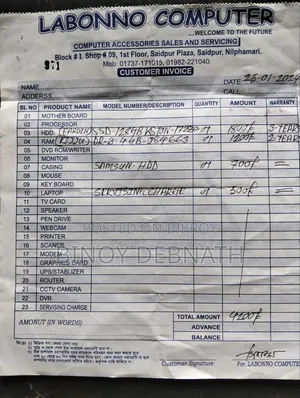 LABONNO COMPUTER
...WELCOME TO THE FUTURE
COMPUTER ACCESSORIES SALES AND SERVICING
Block # 1. Shop # 09, 1st Floor, Saidpur Plaza, Saidpur, Nilphamari.
Mob: 01737-171015, 01982-221040
CUSTOMER INVOICE
NAME
DATE 26-01-2024
ADDERSS
SL NO PRODUCT NAME MODEL/DESCRIPTION QUANTITY AMOUNT WARRANTY
01 MOTHER BOARD
02 PROCESSOR
03 HDD SSD 128GB 1800/- 3-YEAR
04 RAM DDR-3-4GB 1200/- 2-YEAR
05 DVD ROM/WRITER
06 MONITOR
07 CASING SAMSUN-HDD 700/-
08 MOUSE
09 KEY BOARD
10 LAPTOP SERVISING CHARGE 500/-
11 TV CARD
12 SPEAKER
13 PEN DRIVE
14 WEBCAM
15 PRINTER
16 SCANER
17 MODEM
18 GRAPHICS CARD
19 UPS/STABLIZER
20 ROUTER
21 CCTV CAMERA
22 DVR
23 SERVISING CHARGE
POSTED ON BIKROY
BINOY DEBNATH
AMONUT (IN WORDS)
TOTAL AMOUNT 4200/-
ADVANCE
BALANCE
Customer Signature
For, LABONNO COMPUTER